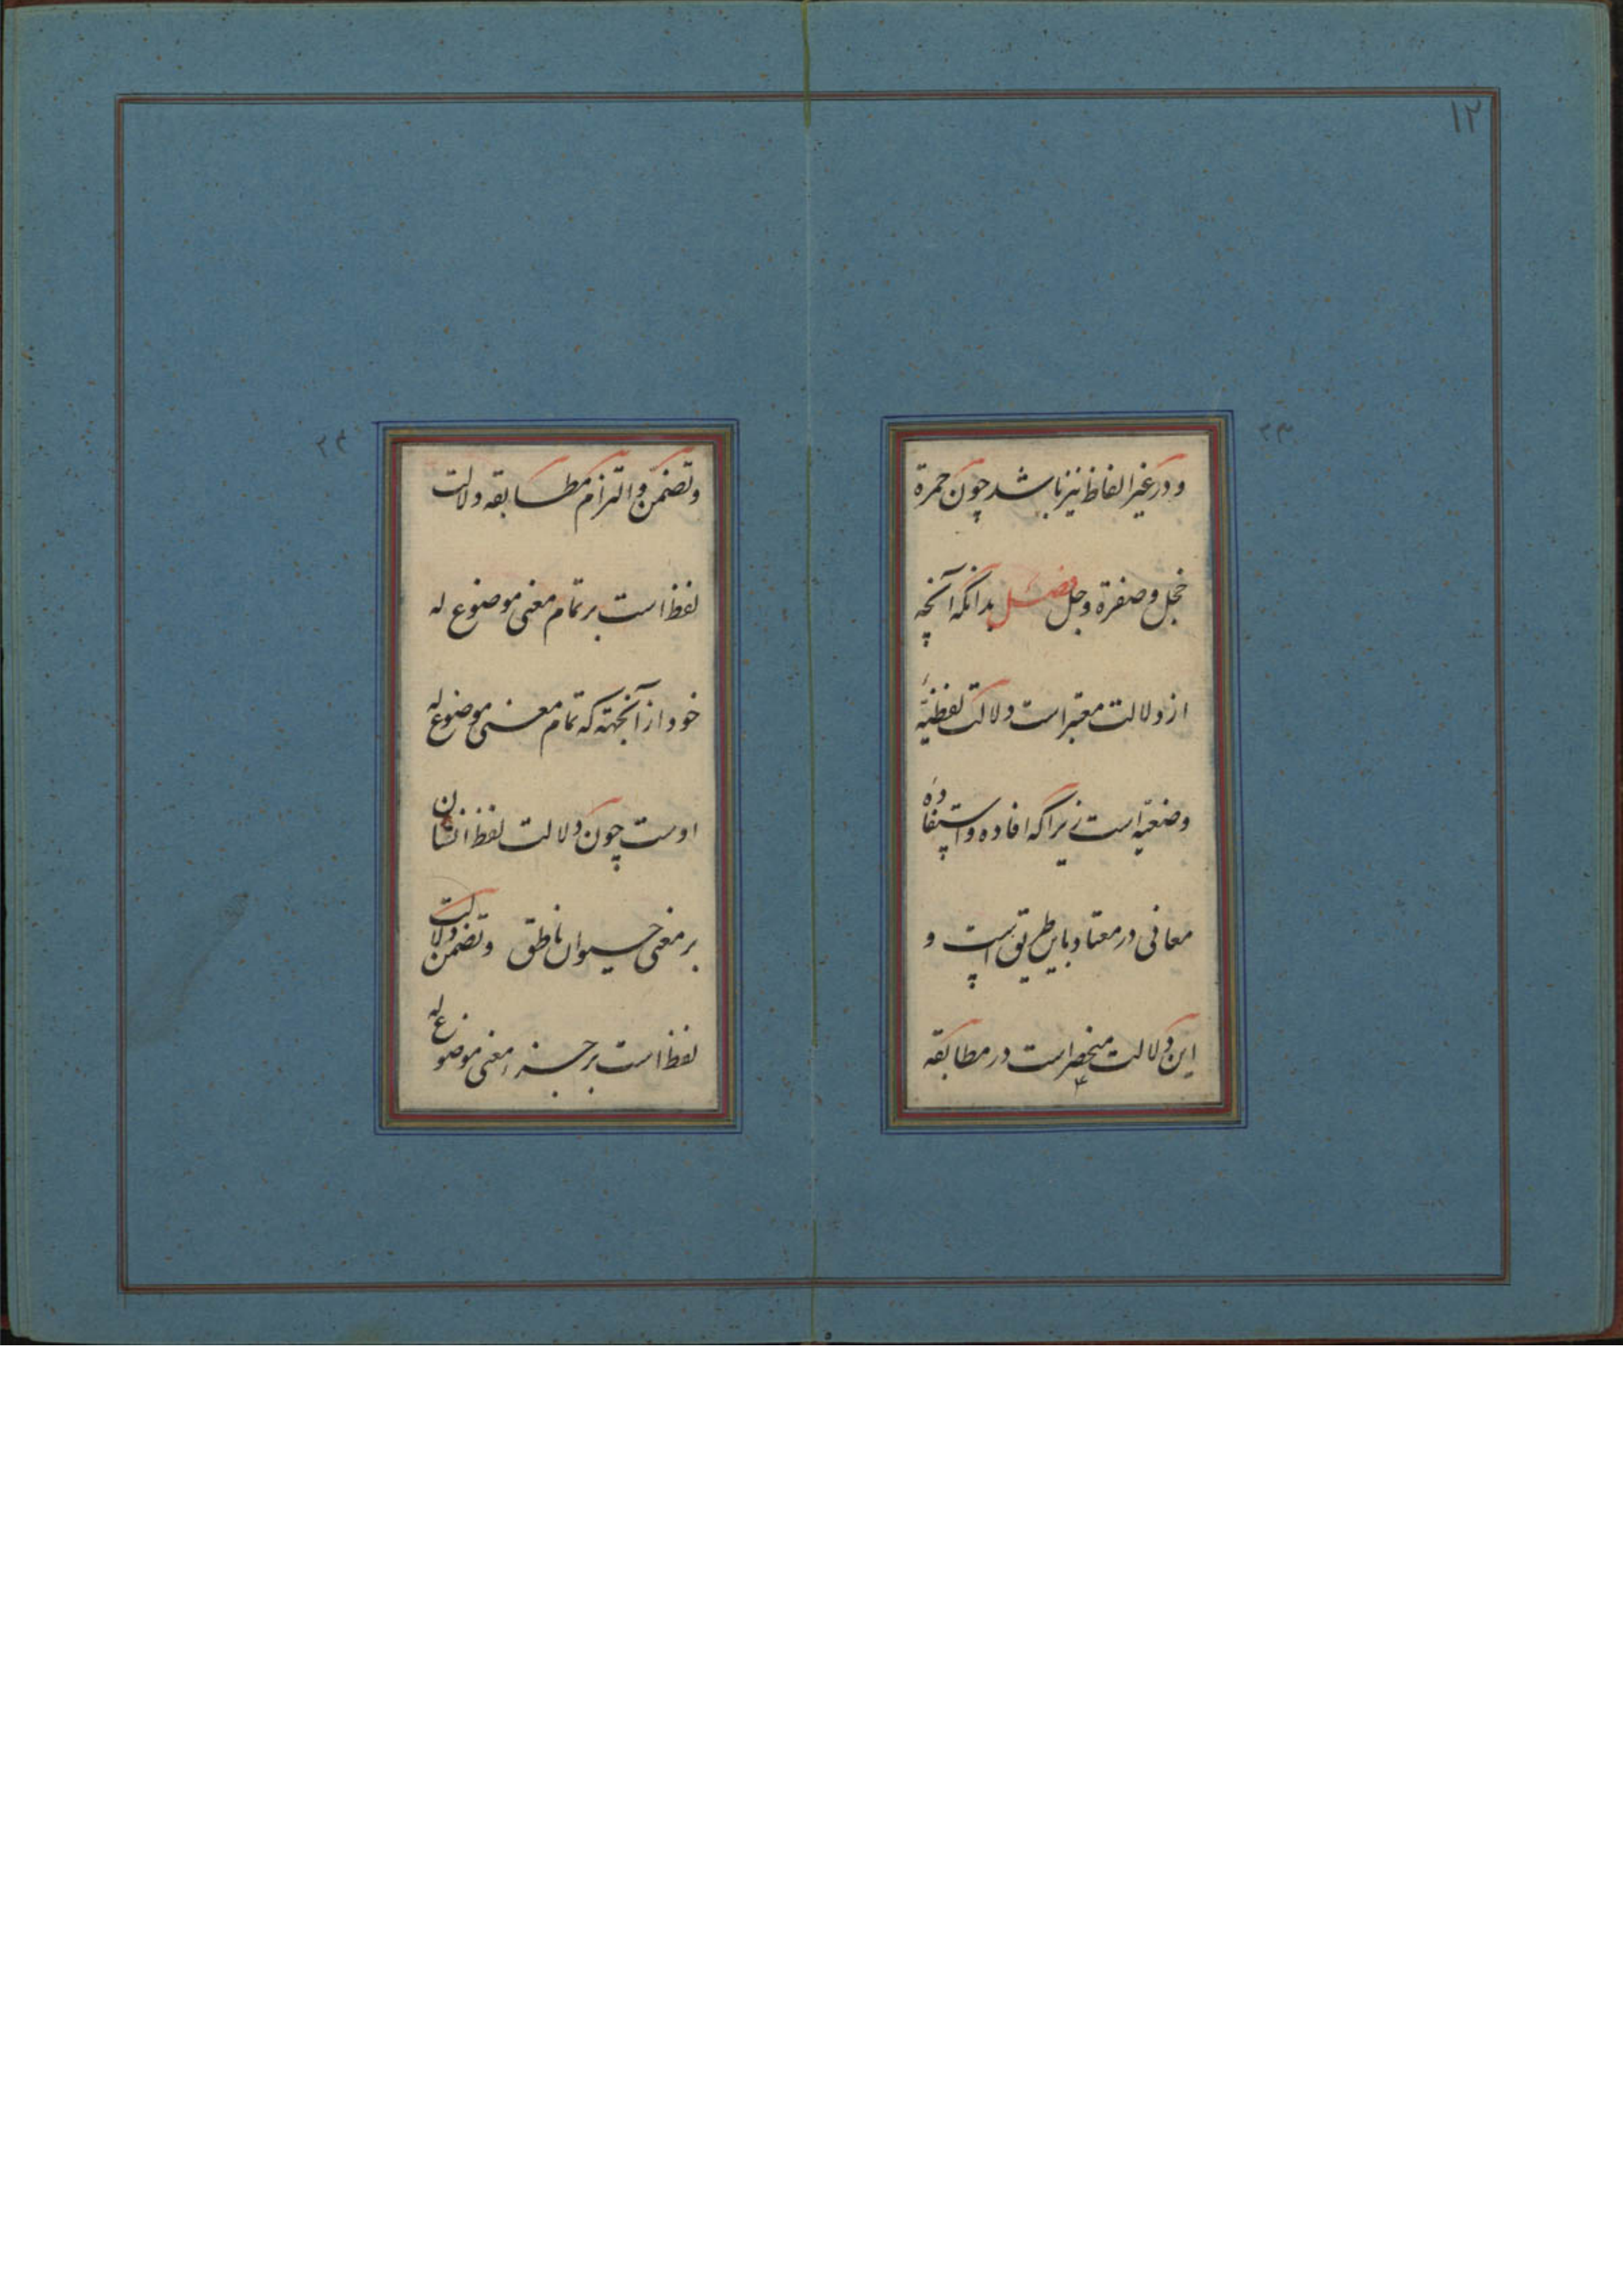 ۱۲
۲۳
و در غیر الفاظ نیز باشد چون حمرة
خجل و صفرة وجل فصل بدانکه آنچه
از دلالت معتبر است دلالت لفظیّه
وضعیّه است زیرا که افاده و استفاده
معانی در معتاد باین طریق است و
این دلالت منحصر است در مطابقه
۲۴
و تضمّن و التزام مطابقه دلالت
لفظ است بر تمام معنی موضوع له
خود از آنجهة که تمام معنی موضوع له
اوست چون دلالت لفظ انسان
بر معنی حیوان ناطق و تضمن دلالت
لفظ است بر جزء معنی موضوع له